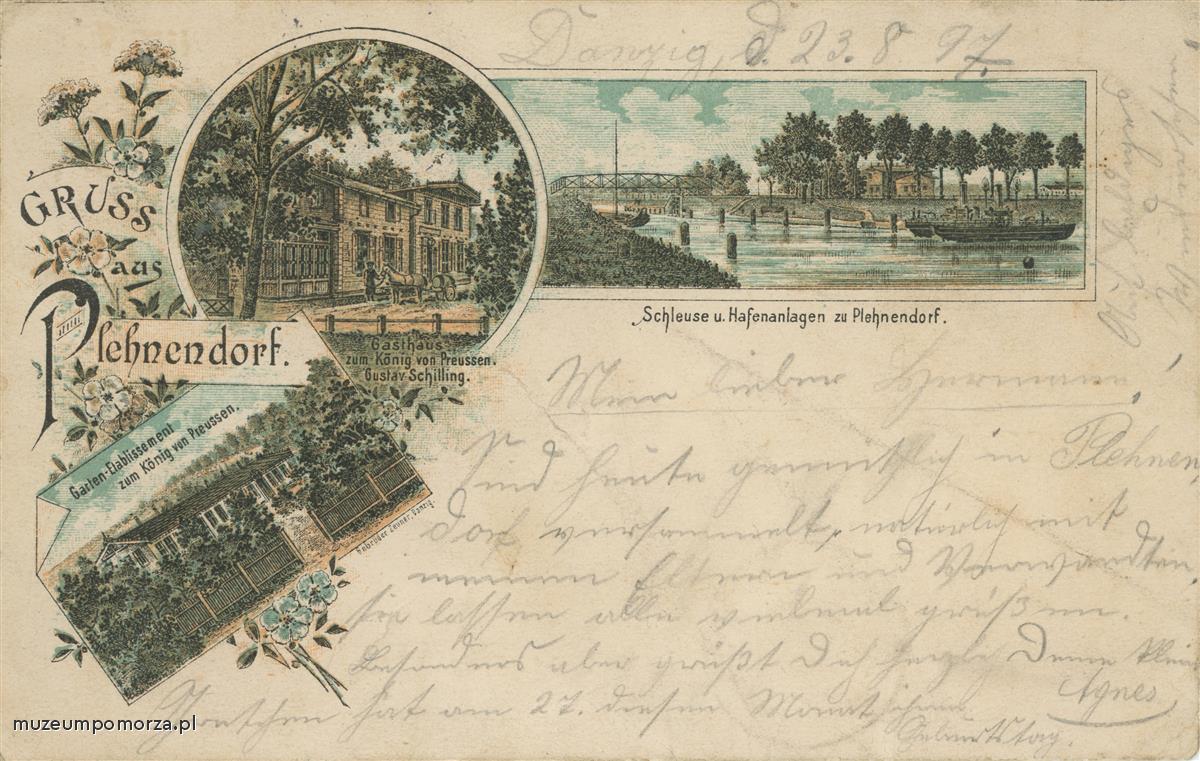 Danzig, d. 23.8.97.
GRUSS
aus
Plehnendorf.
Gasthaus
zum König von Preussen.
Gustav Schilling.
Schleuse u. Hafenanlagen zu Plehnendorf.
Garten-Etablissement
zum König von Preussen.
Gebrüder Zeuner, Danzig
Mein lieber Hermann!
Sind heute gemütlich in Plehnen
dorf versammelt, natürlich mit
meinen Eltern und Verwandten,
sie lassen alle vielmal grüßen.
Besonders aber grüßt Dich herzl. Deine kleine
Agnes
hat am 27. diesen Monat ihren
Geburtstag.
muzeumpomorza.pl